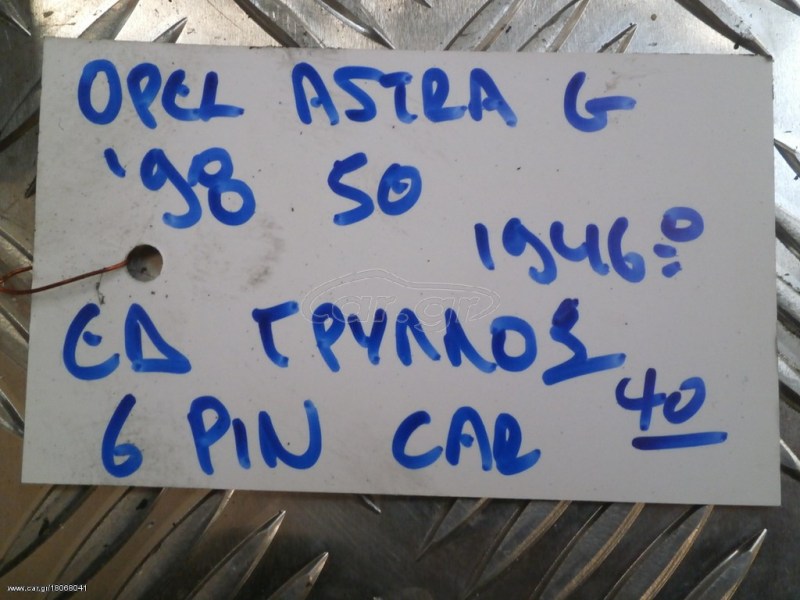 OPEL ASTRA G
'98 50
1946:0
ΕΔ ΓΡΥΛΛΟΣ
6 PIN CAR
40
car.gr
www.car.gr/18068041